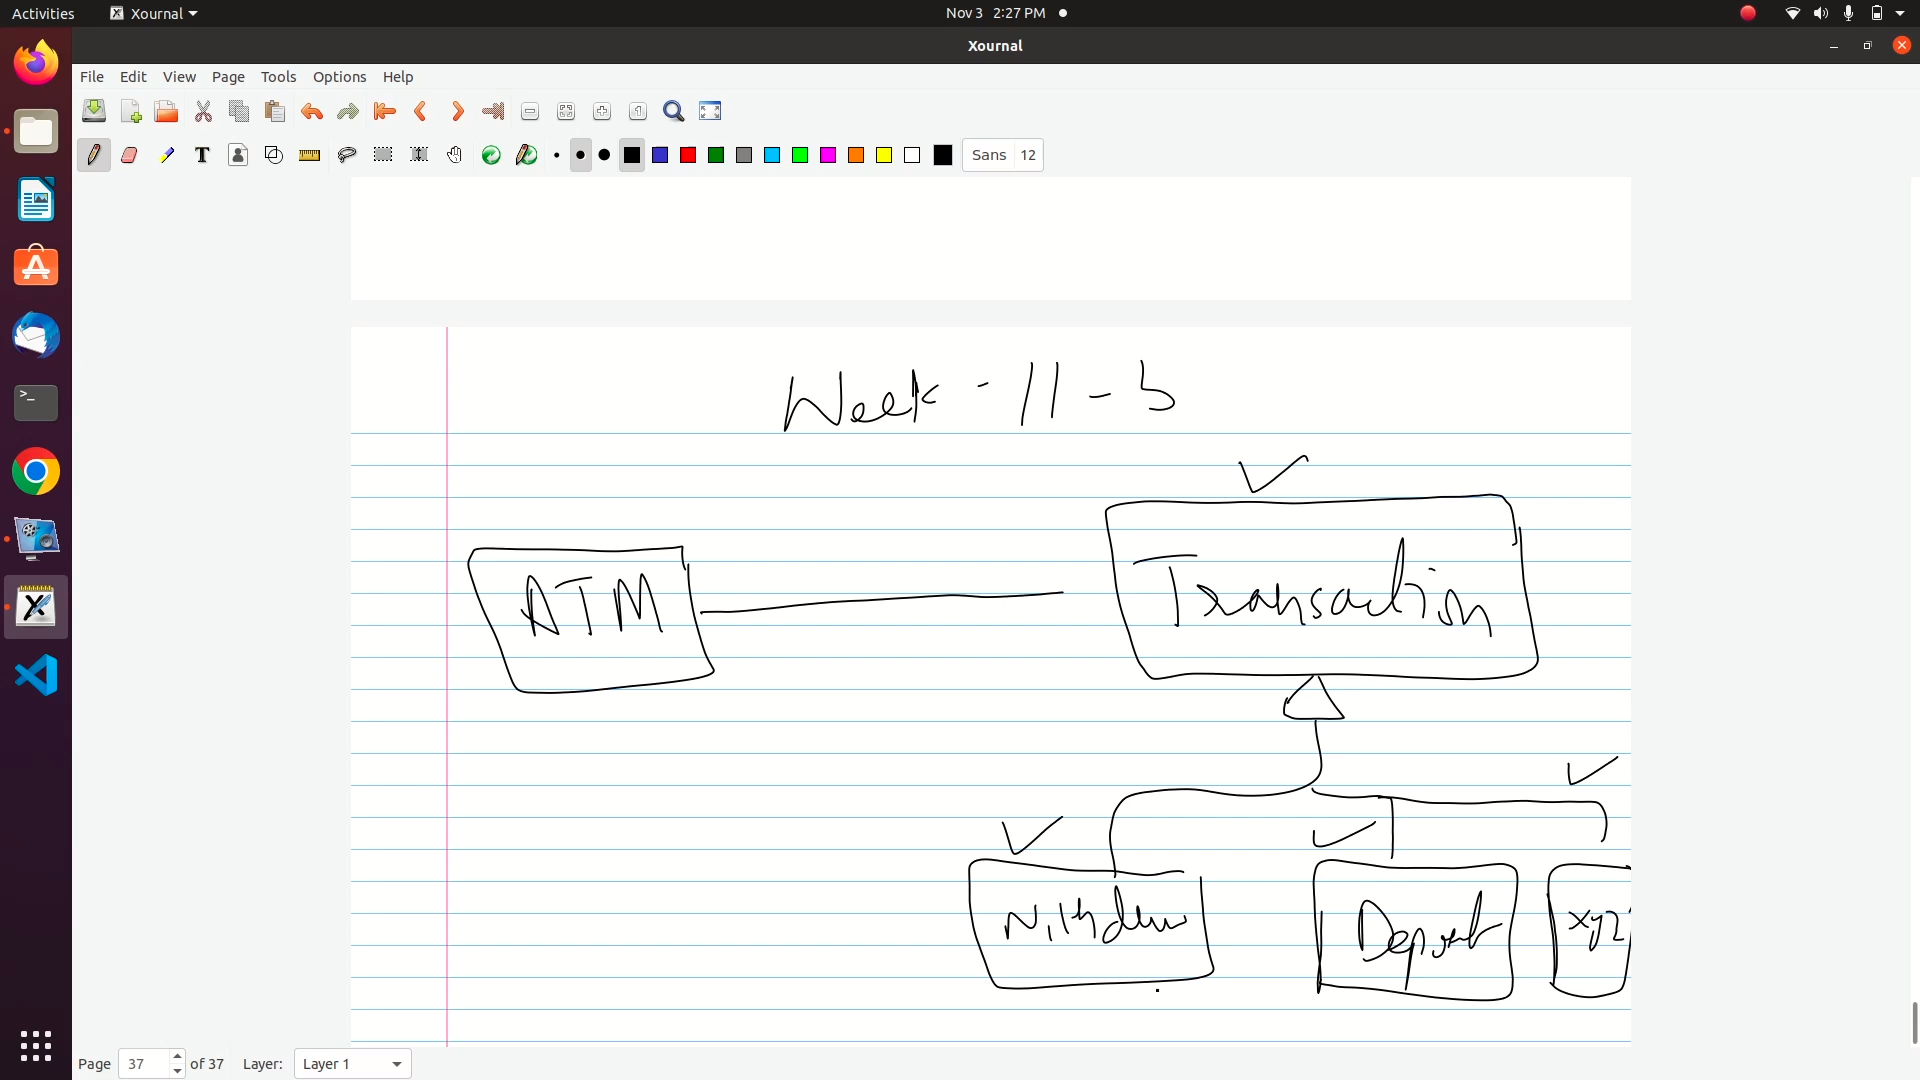 Activities Xournal Nov 3 2:27 PM
Xournal
File Edit View Page Tools Options Help
T Sans 12
Week - 11 - 3
ATM
Transaction
Withdraw Deposit xyz
Page 37 of 37 Layer: Layer 1